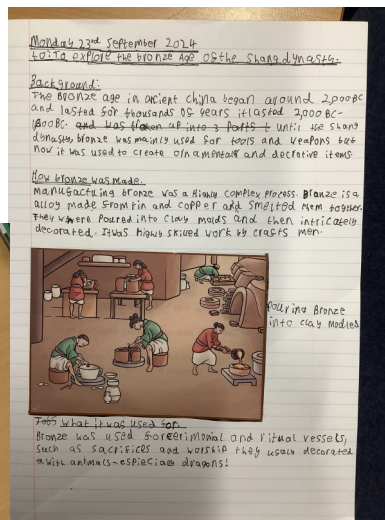 Monday 23rd September 2024
LO: To explore the bronze Age of the Shang dynasty.
Background:
The Bronze age in ancient china began around 2,000BC
and lasted for thousands of years it lasted 2,000BC-
and was up into 3 Parts until the Shang
dynasty bronze was mainly used for tools and weapons but
now it was used to create ornamental and decrative items
How bronze was made.
Manufacturing bronze was a Highly complex process. Bronze is a
alloy made from tin and copper and smelted them together.
They where Poured into clay molds and then intricately
decorated. It was highly skilled work by crafts men.
Pouring Bronze
into clay
what it was used for.
Bronze was used for and ritual vessels,
such as sacrifices and worship they decorated
with animals- dragons!